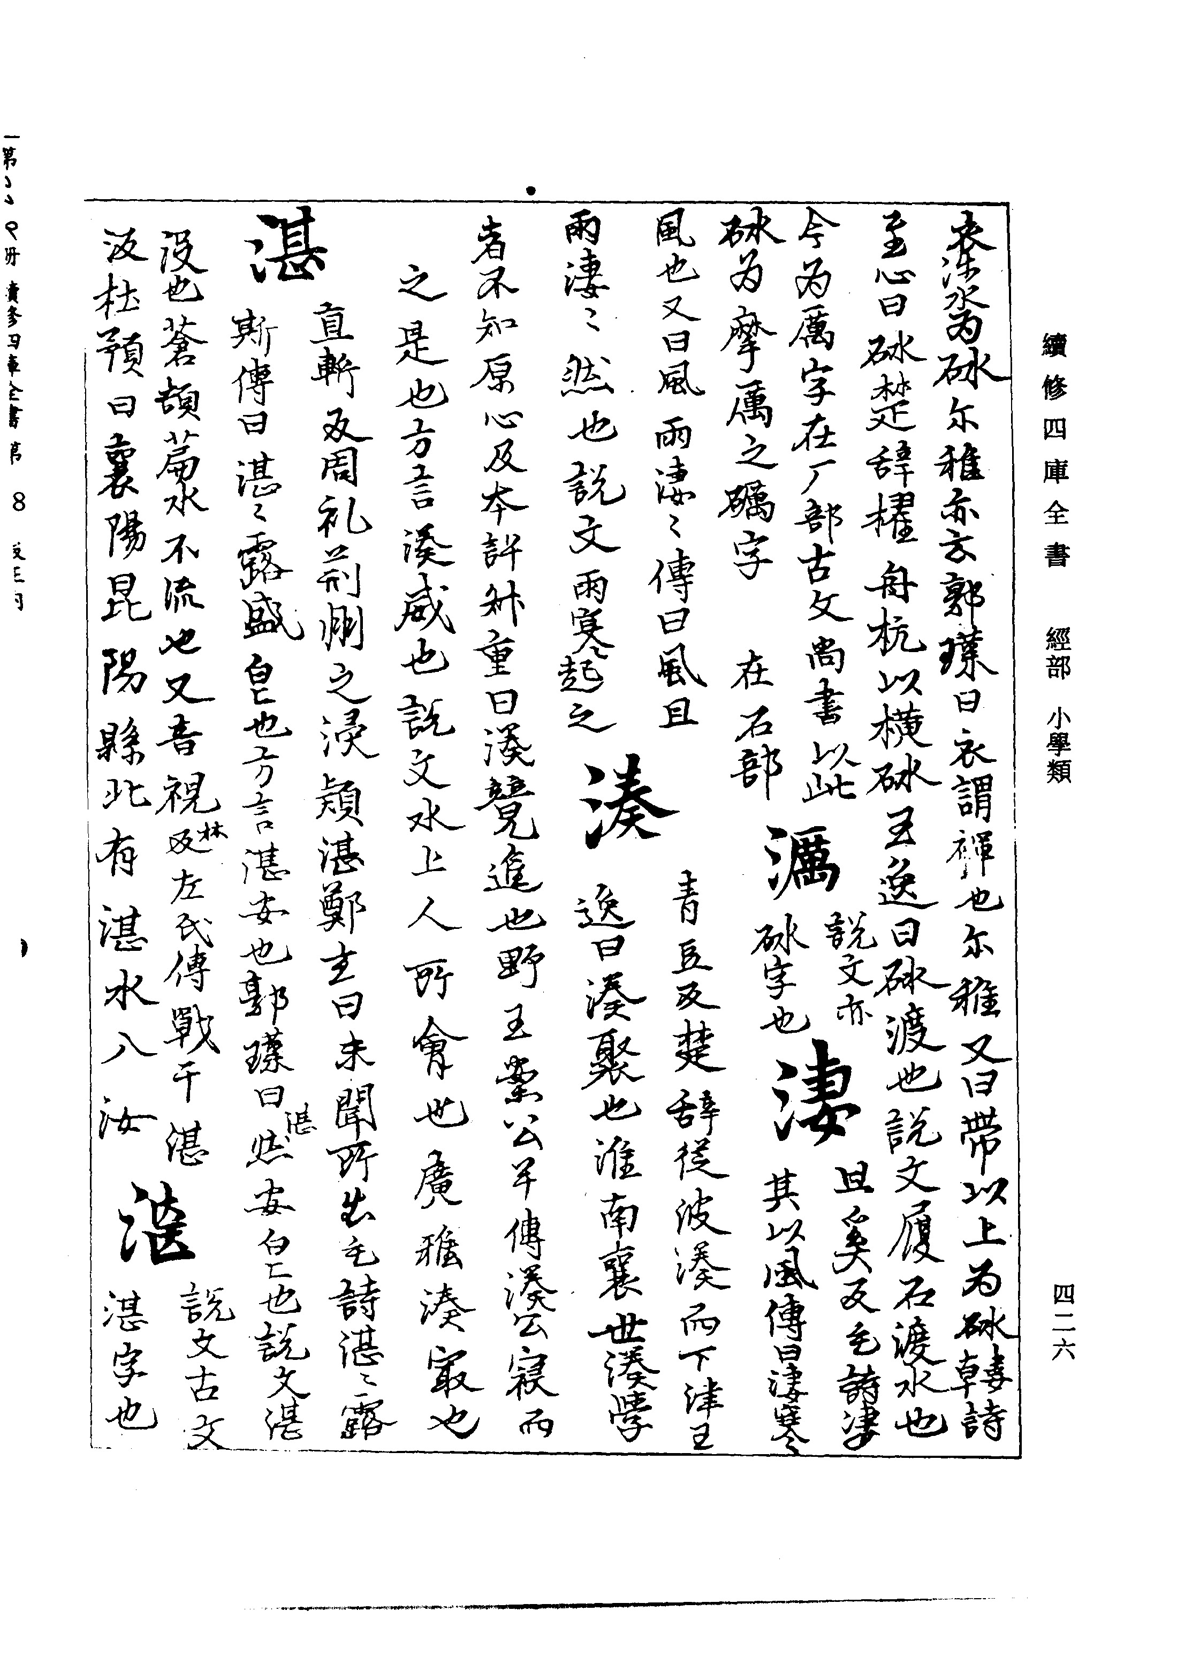 續修四庫全書 經部 小學類
四二六
衣涉水為砅尒雅亦云郭璞曰衣謂褌也尒雅又曰帶以上為砅韓詩
至心曰砅楚辞櫂舟杭以橫砅王逸曰砅渡也說文履石渡水也
今為厲字在厂部古文尚書以此
砅為摩厲之礪字 在石部
濿
說文亦
砅字也
淒
且奚反毛詩淒
其以風傳曰淒寒
風也又曰風雨淒〻傳曰風且
雨淒〻然也說文雨寒起之
湊
青豆反楚辞從波湊而下津王
逸曰湊聚也淮南襄世湊學
者不知原心及本許升重曰湊競進也野王案公羊傳湊公寝而
之是也方言湊威也說文水上人所會也廣雅湊冣也
湛
直斬反周礼荊州之浸潁湛鄭玄曰未聞所出毛詩湛〻露
斯傳曰湛〻露盛皃也方言湛安也郭璞曰湛然安皃也說文湛
沒也蒼頡篇水不流也又音視林反左氏傳戰于湛
汳杜預曰襄陽昆陽縣北有湛水入汝
湛
說文古文
湛字也